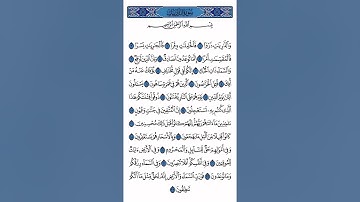 سُورَةُ الذَّارِيَاتِ
بِسْمِ ٱللَّهِ ٱلرَّحْمَٰنِ ٱلرَّحِيمِ
وَٱلذَّٰرِيَٰتِ ذَرْوًا ۝ فَٱلْحَٰمِلَٰتِ وِقْرًا ۝ فَٱلْجَٰرِيَٰتِ يُسْرًا ۝
فَٱلْمُقَسِّمَٰتِ أَمْرًا ۝ إِنَّمَا تُوعَدُونَ لَصَادِقٌ ۝ وَإِنَّ ٱلدِّينَ لَوَٰقِعٌ ۝
وَٱلسَّمَآءِ ذَاتِ ٱلْحُبُكِ ۝ إِنَّكُمْ لَفِى قَوْلٍ مُّخْتَلِفٍ ۝ يُؤْفَكُ عَنْهُ مَنْ
أُفِكَ ۝ قُتِلَ ٱلْخَرَّٰصُونَ ۝ ٱلَّذِينَ هُمْ فِى غَمْرَةٍ سَاهُونَ ۝ يَسْـَٔلُونَ
أَيَّانَ يَوْمُ ٱلدِّينِ ۝ يَوْمَ هُمْ عَلَى ٱلنَّارِ يُفْتَنُونَ ۝ ذُوقُوا۟ فِتْنَتَكُمْ هَٰذَا
ٱلَّذِى كُنتُم بِهِۦ تَسْتَعْجِلُونَ ۝ إِنَّ ٱلْمُتَّقِينَ فِى جَنَّٰتٍ وَعُيُونٍ ۝
ءَاخِذِينَ مَآ ءَاتَىٰهُمْ رَبُّهُمْ إِنَّهُمْ كَانُوا۟ قَبْلَ ذَٰلِكَ مُحْسِنِينَ ۝
كَانُوا۟ قَلِيلًا مِّنَ ٱلَّيْلِ مَا يَهْجَعُونَ ۝ وَبِٱلْأَسْحَارِ هُمْ يَسْتَغْفِرُونَ ۝
وَفِىٓ أَمْوَٰلِهِمْ حَقٌّ لِّلسَّآئِلِ وَٱلْمَحْرُومِ ۝ وَفِى ٱلْأَرْضِ ءَايَٰتٌ
لِّلْمُوقِنِينَ ۝ وَفِىٓ أَنفُسِكُمْ أَفَلَا تُبْصِرُونَ ۝ وَفِى ٱلسَّمَآءِ رِزْقُكُمْ
وَمَا تُوعَدُونَ ۝ فَوَرَبِّ ٱلسَّمَآءِ وَٱلْأَرْضِ إِنَّهُۥ لَحَقٌّ مِّثْلَ مَآ أَنَّكُمْ
تَنطِقُونَ ۝